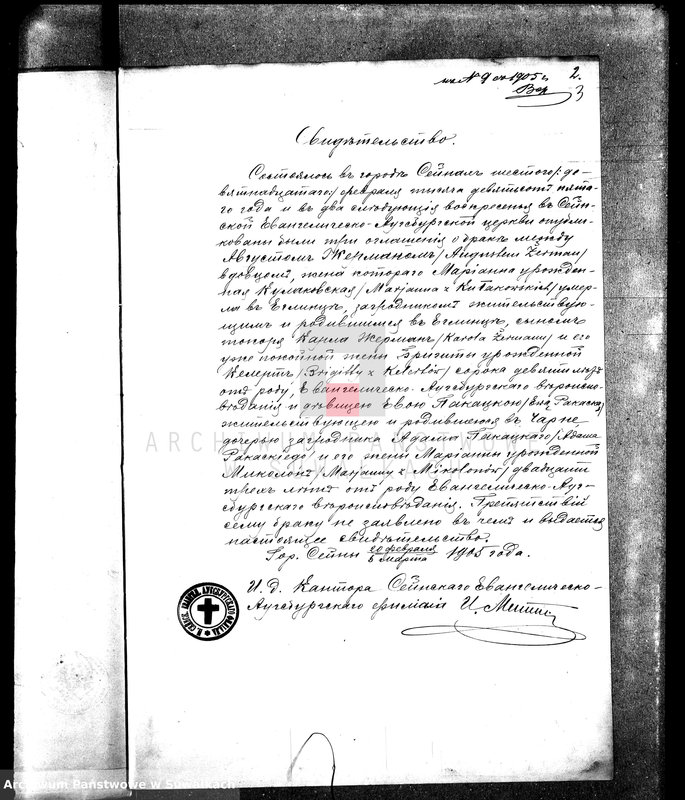 къ № 9 от 1905 г. 2.
3
Свидѣтельство.
Состоялось въ городѣ Сейнахъ шестого /: де-
вятнадцатаго:/ февраля тысяча девятьсотъ пята-
го года и въ два слѣдующія воскресенья въ Сейн-
ской Евангелическо-Аугсбургской церкви опубли-
кованы были три оглашенія о бракѣ между
Августомъ Жерманомъ /Augustem Żerman/
вдовцемъ, жена котораго Маріанна урожден-
ная Кулаковская /Marjanna z Kułakowskich/ умер-
ла въ Еглинцѣ, загродникомъ жительствую-
щимъ и родившимся въ Еглинцѣ, сыномъ
Карла Жерманъ /Karola Żerman/ и его
уже покойной жены Бригиты урожденной
Кемертъ /Brigitty z / сорока девяти лѣтъ
отъ роду, Евангелическо-Аугсбургскаго вѣроиспо-
вѣданія и дѣвицею Евою Пакацкою /Ewą Pakacką/
жительствующею и родившеюся въ Чарне
дочерью загродника Адама Пакацкаго /Adama
Pakackiego/ и его жены Маріанны урожденной
Миколонъ /Marjanny z Mikołonów/ двадцати
трехъ лѣтъ отъ роду Евангелическо-Ауг-
сбургскаго вѣроисповѣданія. Препятствій
сему браку не заявлено въ чемъ и выдается
настоящее свидѣтельство.
Гор. Сейны 20 февраля / 5 марта 1905 года.
И. д. Кантора Сейнскаго Евангелическо-
Аугсбургскаго филіала И.
ARCHIWUM PAŃSTWOWE
W SUWAŁKACH
Archiwum Państwowe w Suwałkach